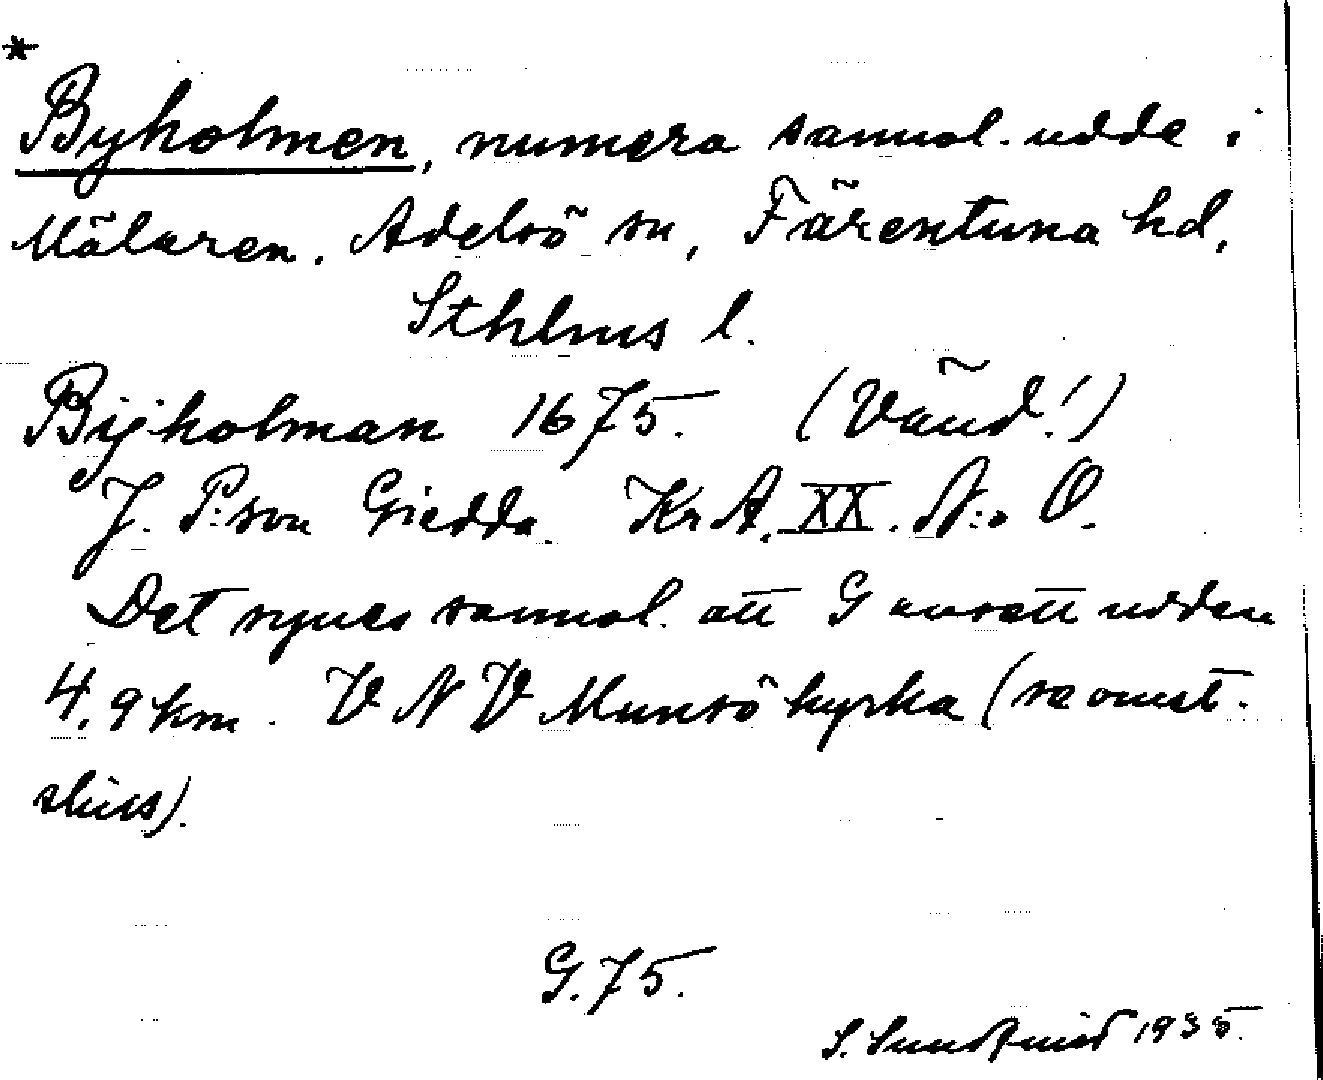 *
Byholmen, numera sannol. udde i
Mälaren. Adelsö sn, Färentuna hd,
Sthlms l.
Bÿholman 1675. (Vänd!)
J. P:son Giedda. KrA. XX. N:o O.
Det synes sannol. att G avsett udden
4,9 km. V N V Munsö kyrka (se omst.
G. 75.
S. Sundqvist 1935.